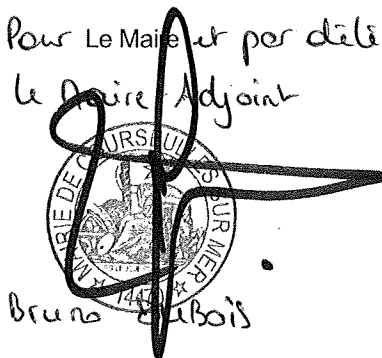 Pour Le Maire et par délé
le Maire Adjoint
MAIRIE DE COURSEULLES SUR MER
Bruno DuBois